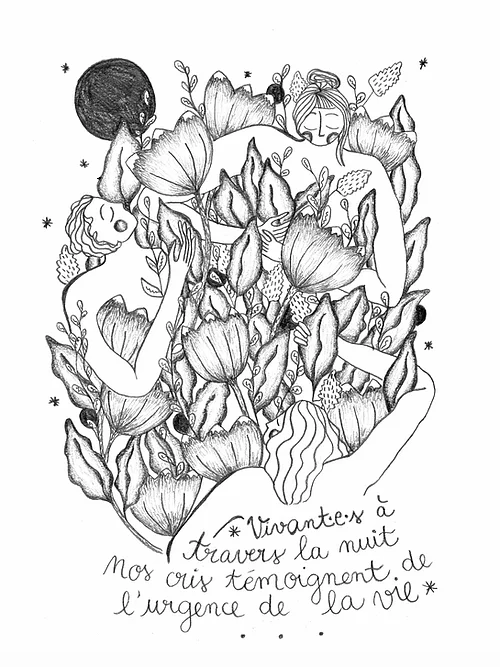 * Vivant·e·s à
travers la nuit
Nos cris témoignent de
l'urgence de la vie *
. . .